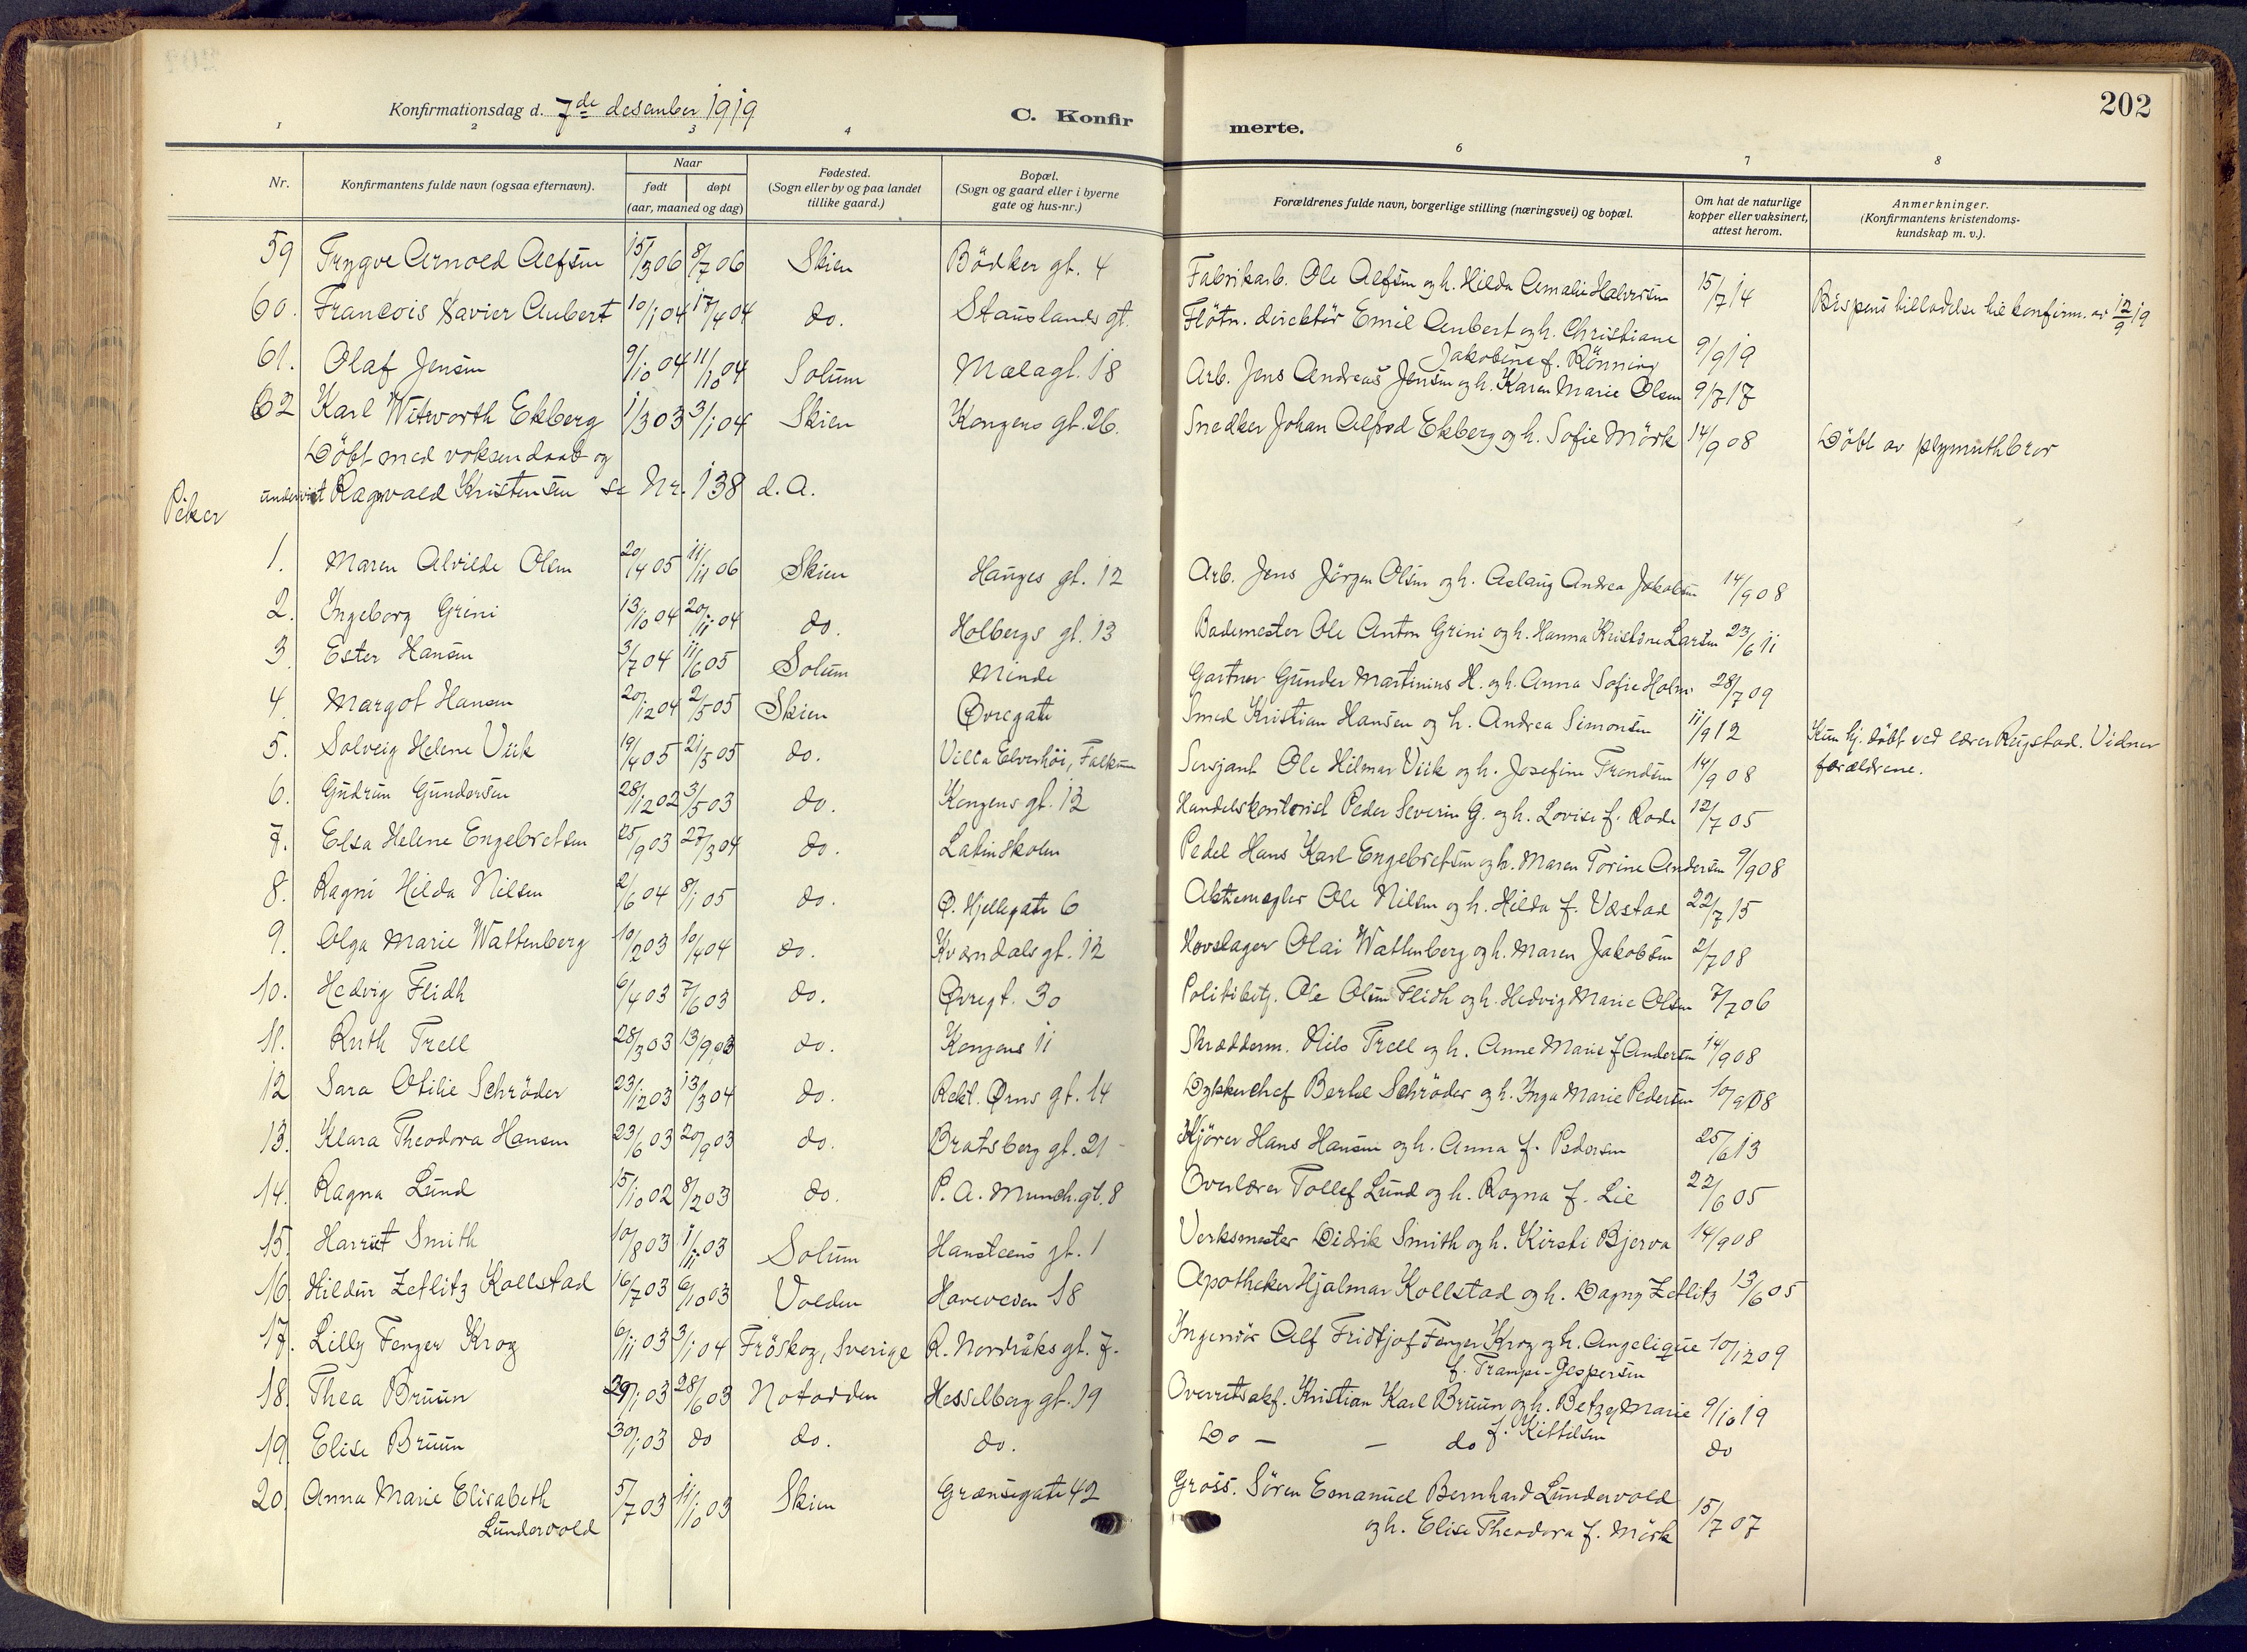 202
Konfirmationsdag d. 7de desember 1919
C. Konfir merte.
1 2 3 4 6 7 8
Nr. Konfirmantens fulde navn (ogsaa efternavn). Naar født døpt (aar, maaned og dag) Fødested. (Sogn eller by og paa landet tillike gaard.) Bopæl. (Sogn og gaard eller i byerne gate og hus-nr.) Forældrenes fulde navn, borgerlige stilling (næringsvei) og bopæl. Om hat de naturlige kopper eller vaksinert, attest herom. Anmerkninger. (Konfirmantens kristendoms-kundskap m. v.).
59 Trygve Arnold Alfsen 15/3 06 8/7 06 Skien Bödker gt. 4 Fabrikarb. Ole Alfsen og h. Hilda Amalie Halvorsen 15/7 14
60. Francois Xavier Aubert 10/1 04 17/4 04 do. Stauslands gt. Flötn. direktör Emil Aubert og h. Christiane 9/9 19 Bispens tilladelse til konfirm. av 12/9 19
Jakobine f. Rönning
61. Olaf Jensen 9/10 04 11/10 04 Solum Mælagt. 18 Arb. Jens Andreas Jensen og h. Karen Marie Olsen 9/7 17
62 Karl Witworth Ekberg 1/3 03 3/1 04 Skien Kongens gt. 26. Snedker Johan Alfred Ekberg og h. Sofie Mörk 14/9 08 Döbt av plymuthbror
Döbt med voksendaab og
undervist Ragnvald Kristensen se Nr. 138 d. A.
Piker
1. Maren Alvilde Olsen 20/4 05 11/11 06 Skien Hauges gt. 12 Arb. Jens Jörgen Olsen og h. Aslaug Andrea Jakobsen 14/9 08
2. Ingeborg Grini 13/10 04 20/11 04 do. Holbergs gt. 13 Bademester Ole Anton Grini og h. Hanna Kristine Larsen 23/6 11
3. Ester Hansen 3/7 04 11/6 05 Solum Minde Gartner Gunder Martinius H. og h. Anna Sofie Holm 28/7 09
4. Margot Hansen 20/12 04 2/5 05 Skien Øvregate Smed Kristian Hansen og h. Andrea Simonsen 11/9 12
5. Solveig Helene Viik 19/4 05 21/5 05 do. Villa Elverhöi, Falkum Sersjant Ole Hilmar Viik og h. Josefine Trondsen 14/9 08 Kun hj. döbt ved lærer Rugstad. Vidner
forældrene.
6. Gudrun Gundersen 28/12 02 3/5 03 do. Kongens gt. 12 Handelskontorist Peder Severin G. og h. Lovise f. Rode 12/7 05
7. Elsa Helene Engebretsen 25/9 03 27/3 04 do. Latinskolen Pedel Hans Karl Engebretsen og h. Maren Torine Andersen 9/9 08
8. Ragni Hilda Nilsen 2/6 04 8/1 05 do. Ø. Hjellegate 6 Aktiemegler Ole Nilsen og h. Hilda f. Væstad 22/7 15
9. Olga Marie Wattenberg 10/2 03 10/4 04 do. Kværndals gt. 12 Hovslager Olai Wattenberg og h. Maren Jakobsen 2/7 08
10. Hedvig Flidh 6/4 03 7/6 03 do. Øvregt. 30 Politibetj. Ole Olsen Flidh og h. Hedvig Marie Olsen 7/7 06
11. Ruth Trell 28/3 03 13/9 03 do. Kongens 11 Skrædderm. Nils Trell og h. Anne Marie f Andersen 14/9 08
12 Sara Otilie Schröder 23/12 03 13/3 04 do. Rekt. Ørns gt. 14 Dykkerchef Bertel Schröder og h. Inga Marie Pedersen 10/9 08
13. Klara Theodora Hansen 23/6 03 20/9 03 do. Bratsberg gt. 21 Kjörer Hans Hansen og h. Anna f. Pedersen 25/6 13
14. Ragna Lund 15/10 02 8/2 03 do. P. A. Munch. gt. 8 Overlærer Tollef Lund og h. Ragna f. Lie 22/6 05
15. Harriet Smith 10/8 03 1/11 03 Solum Hansteens gt. 1 Verksmester Didrik Smith og h. Kirsti Bjerva 14/9 08
16. Hildur Zetlitz Kollstad 16/7 03 6/10 03 Volden Hareveien 18 Apotheker Hjalmar Kollstad og h. Dagny Zetlitz 13/6 05
17. Lilly Fenger Krog 6/11 03 3/1 04 Fröskog, Sverige R. Nordråks gt. 7. Ingeniör Alf Fridtjof Fenger Krog og h. Angelique 10/12 09
f. Trampe-Jespersen
18. Thea Bruun 29/1 03 28/6 03 Notodden Hesselberg gt. 19 Overretssakf. Kristian Karl Bruun og h. Betzy Marie 9/10 19
f. Kittelsen
19. Elise Bruun 30/1 03 do do. do. Do — — do do
20. Anna Marie Elisabeth 5/7 03 11/10 03 Skien Grænsegate 42 Gross. Sören Emanuel Bernhard Lundervold 15/7 07
Lundervold og h. Elise Theodora f. Mörk